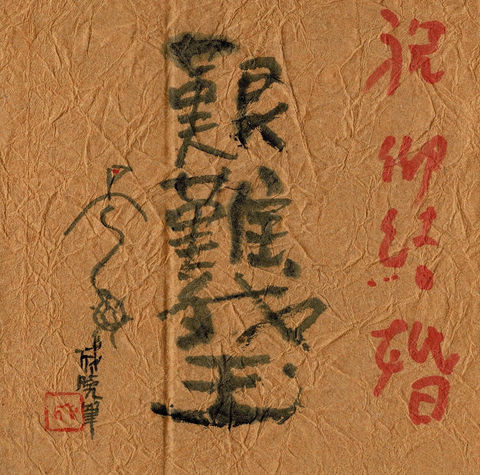 祝 御結婚
艱難我玉